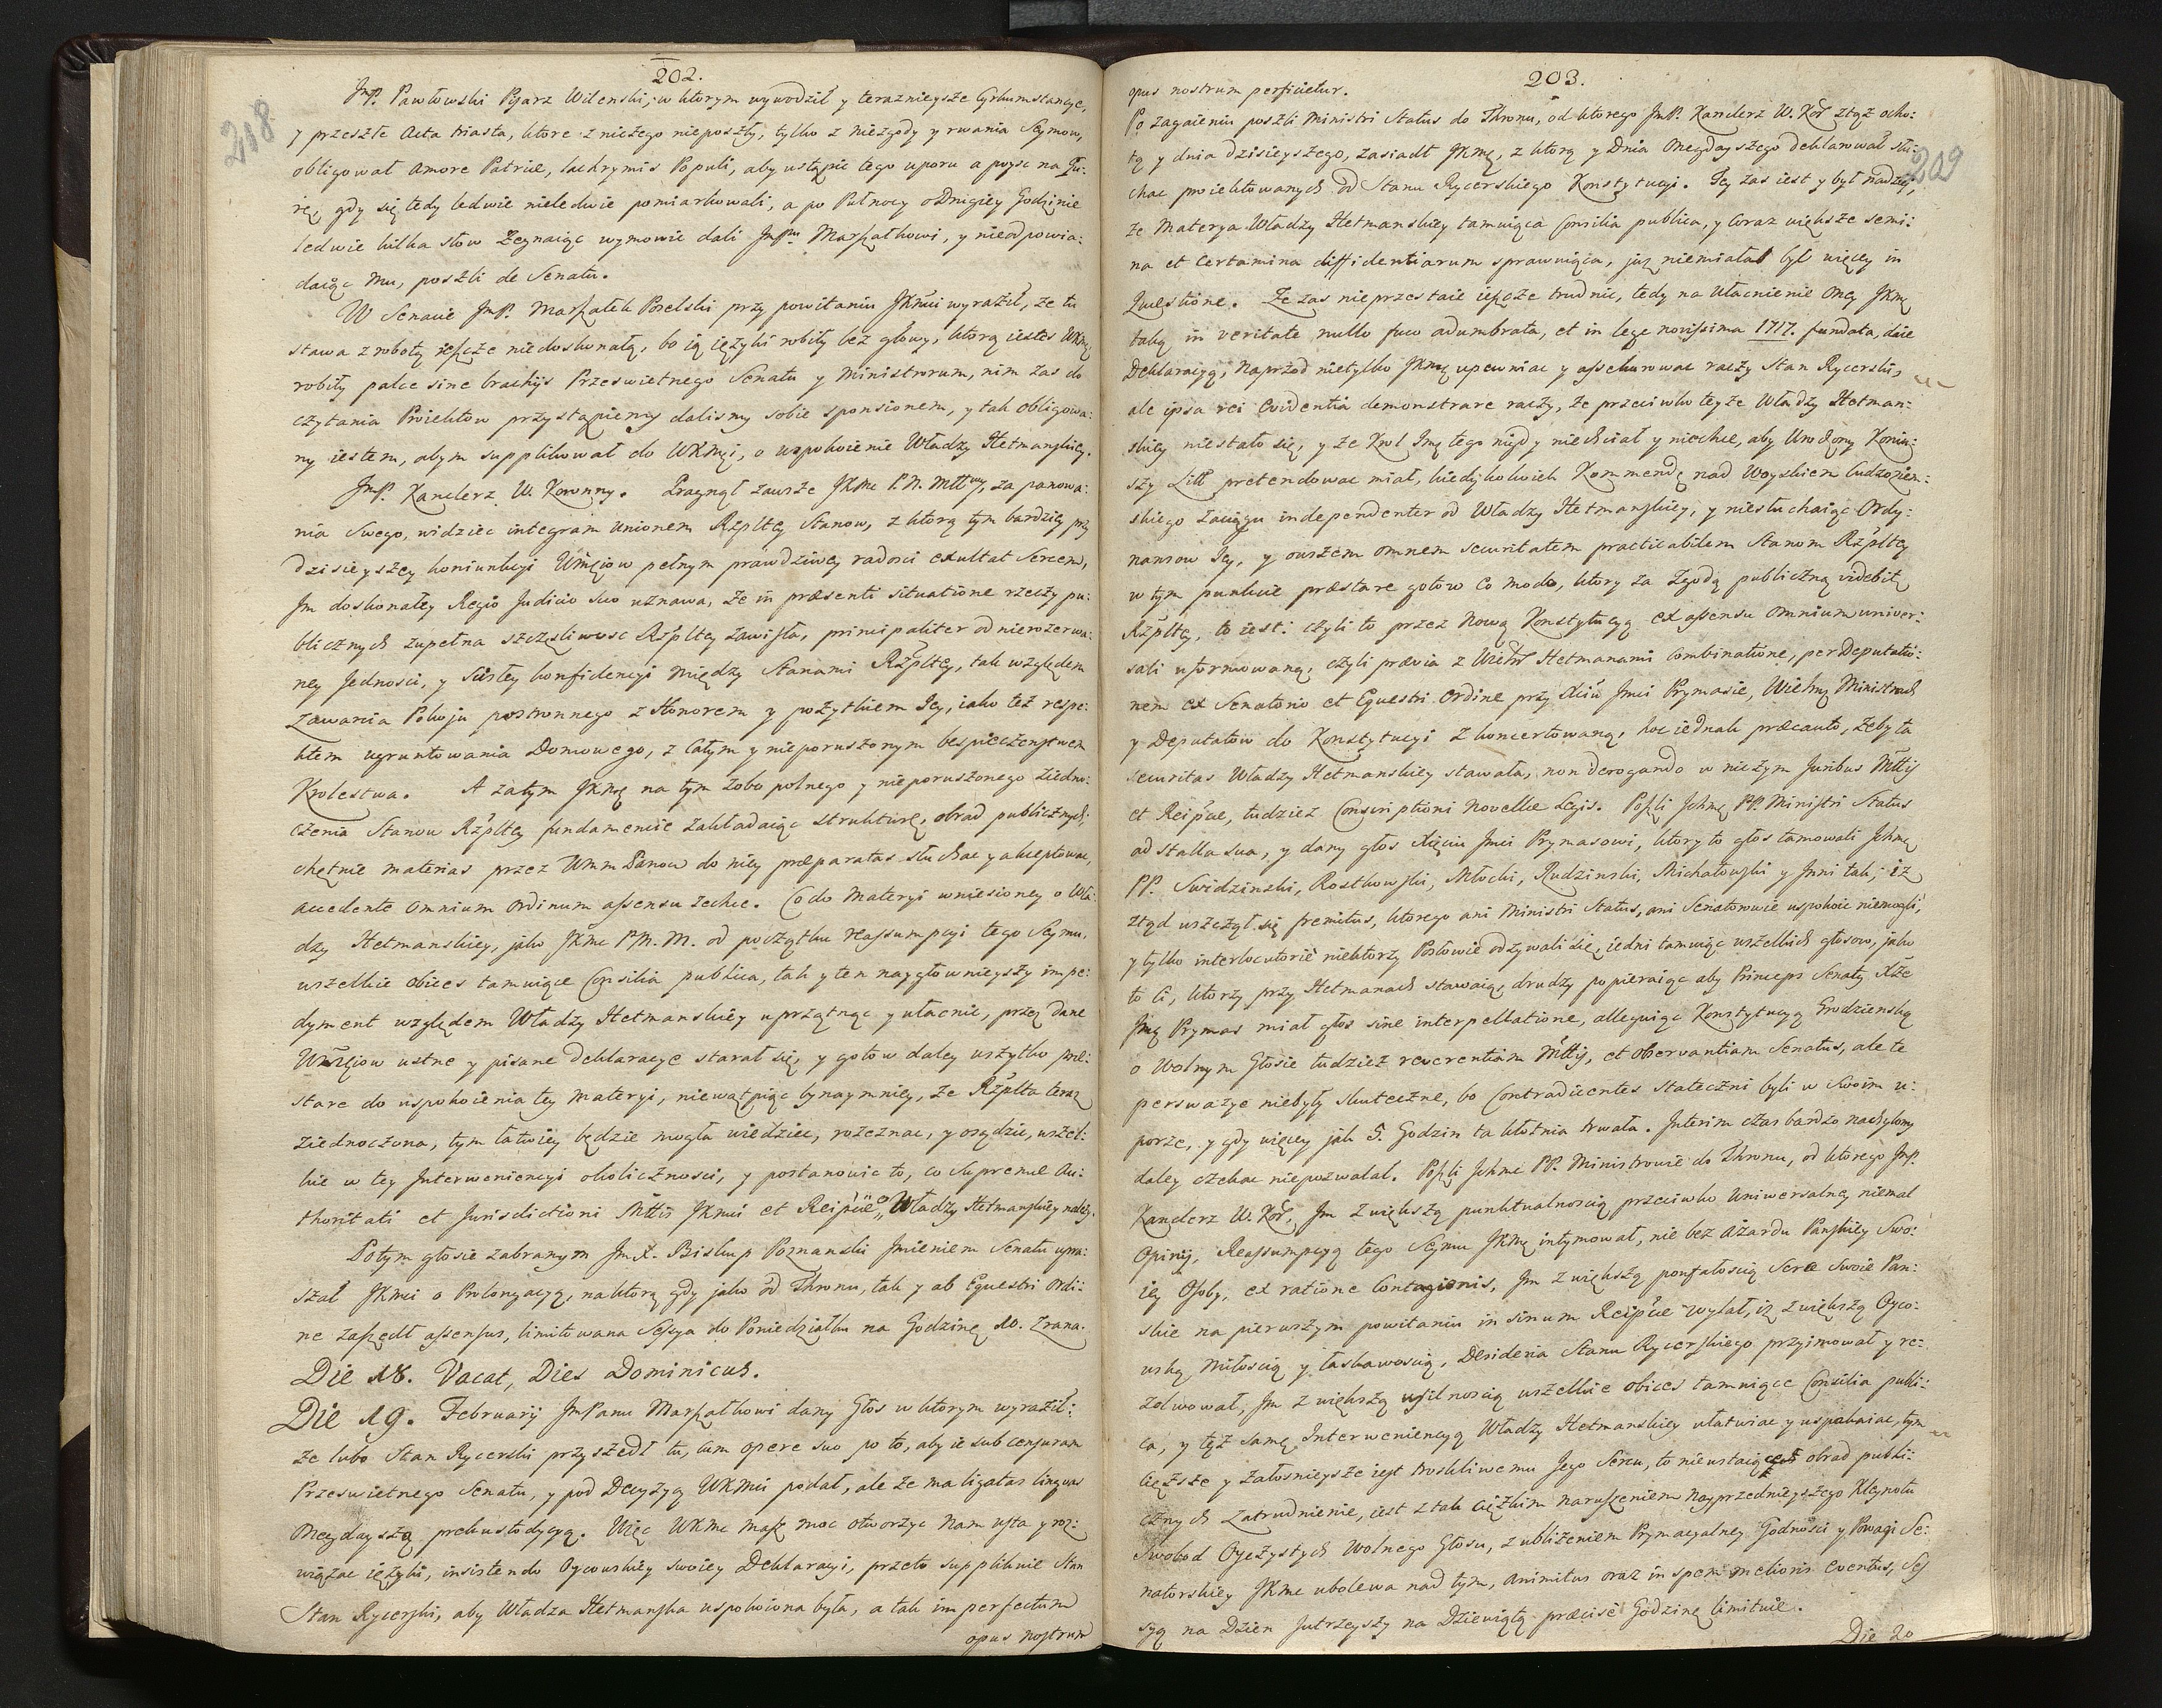 202.
218
JmP. Pawłowski Pisarz Wilenski, w ktorym wywodził y teraznieysze Cyrkumstancye,
y przeszłe acta triasta, ktore z niczego nieposzły, tylko z niezgody y rwania Seymow,
obligował amore Patriæ, lachrymis Populi, aby ustąpić tego uporu a poysc na Gu-
rę, gdy się tedy ledwie nieledwie pomiarkowali, a po Pułnocy o Drugiey Godzinie
ledwie kilka słow Zegnaiąc wymowic dali JmPu Marszałkowi, y nieodpowia:
daiąc mu, poszli do Senatu.
W Senacie JmP. Marszałek Poselski przy powitaniu JKmci wyraził, ze tu
stawa z robotą ieszcze niedoskonałą, bo ią ięzyki robiły bez głowy, ktorą iestes WKmć,
robiły palce sine brachijs Przeswietnego Senatu y Ministrorum, nim zas do
czytania Proiektow przystąpiemy dalismy sobie sponsionem, y tak obligowa:
ny iestem, abym supplikował do WKMci, o uspokoienie Władzy Hetmanskiey.
JmP. Kanclerz W. Koronny. Pragnął zawsze JKmc P. N. Mttwy, za panowa:
nia Swego, widziec integram unionem Rzpltey Stanow, z ktorą tym bardziey przy
dzisieyszey koniunkcyi Wmciow pełnym prawdziwey radosci exultat Sercem,
Im doskonałey Regio Judicio suo uznawa, ze in præsenti situatione rzeczy pu:
blicznych zupełna szczęsliwosc Rzpltey zawisła, principaliter od nierozerwa:
ney Jednosci, y scisłey konfidencyi między Stanami Rzpltey, tak względem
Zawarcia Pokoju postronnego z Honorem y pozytkiem Jey, iako też respe:
ktem ugruntowania Domowego, z całym y nieporuszonym bespieczenstwem
Krolestwa. A zatym JKmć na tym zobopolnego y nieporuszonego ziedno:
czenia Stanow Rzpltey fundamencie zakładaiąc strukturę, obrad publicznych,
chętnie materias przez Wmm Panow do niey præparatas słuchac y akceptowac,
accedente omnium Ordinum assensu zechce. Co do Materyi wniesioney o Wła
dzy Hetmanskiey, jako JKmc P. N. M. od początku reassumpcyi tego Seymu,
wszelkie obices tamuiące Consilia publica, tak y ten naygłownieyszy impe:
dyment względem Władzy Hetmanskiey uprzątnąc y ułacnic, przez dane
Wmciow ustne y pisane deklaracye starał się, y gotow daley wszytko præ:
stare do uspokoienia tey materyi, niewątpiąc bynaymniey, ze Rzplta teraz
ziednoczona, tym łatwiey będzie mogła wiedziec, rozeznac, y osądzic, wszel:
kie w tey Interweniencyi okolicznosci, y postanowic to, co Supremæ Au:
thoritati et Jurisdictioni Mttis JKmci et Reipcæ, Władzy Hetmanskiey należy.
Potym głosie zabranym Jm X. Biskup Poznanski Jmieniem Senatu upra:
szał JKmci o Prolongacyą, na ktorą gdy jako od Thronu, tak y ab Equestri Ordi:
ne zaszedł assensus, limitowana Sessya do Poniedziałku na Godzinę 10. Zrana.
Die 18. Vacat, Dies Dominicus.
Die 19. Februarij JmPanu Marszałkowi dany Głos w ktorym wyraził:
ze lubo Stan Rycerski przyszedł tu, cum opere suo po to, aby ie sub censuram
Przeswietnego Senatu, y pod Decyzyą WKmci podał, ale ze ma ligatas linguas
onegdayszą prekustodycyą. Więc WKmc masz moc otworzyc nam usta y roz:
wiązac ięzyki, insistendo Oycowskiey swoiey Deklaracyi, przeto supplikuie Stan
Stan Rycerski, aby Władza Hetmanska uspokoiona była, a tak imperfectum
opus nostrum
203.
209
opus nostrum perficietur.
Po zagaieniu poszli Ministri Status do Thronu, od ktorego JmP. Kanclerz W. Kor ztąż ocho:
tą y dnia dzisieyszego, zasiadł JKmć, z ktorą y Dnia onegdayszego deklarował słu:
chac proiektowanych od Stanu Rycerskiego Konstytucyi. Jey zas iest y był nadziei,
ze Materya Władzy Hetmanskiey tamuiąca Consilia publica, y coraz większe semi:
na et Certamina diffidentiarum sprawuiąca, już niemiała być więcey in
Quæstione. Ze zas nieprzestaie ieszcze trudnic, tedy na ułacnienie oney JKmć
taką in veritate nullo fuco adumbrata, et in lege novissima 1717. fundata, daie
Deklaracyą, Naprzod nietylko JKmć upewniac y assekurowac raczy Stan Rycerski,
ale ipsa rei evidentia demonstrare raczy, że przeciwko teyże Władzy Hetman:
skiey niestało się, y ze Krol Jmć tego nigdy niechciał y niechce, aby Urodzony Koniu:
szy Litt pretendowac miał, kiedyżkolwiek Kommendę nad Woyskiem Cudzoziem:
skiego Zaciągu independenter od Władzy Hetmanskiey, y niesłuchaiąc Ordy:
nansow Jey, y owszem omnem securitatem practicabilem Stanom Rzpltey
w tym punkcie præstare gotow eo modo, ktory za Zgodą publiczną videbitur
Rzpltey, to iest: czyli to przez Nową Konstytucyą ex assensu omnium univer:
sali uformowaną, czyli prævia z Hetmanami Combinatione, per Deputatio:
nem ex Senatorio et Equestri Ordine przy Xciu Jmci Prymasie, Wielmż Ministrach
y Deputatow do Konstytucyi zkoncertowaną, hoc iednak præcauto, żeby ta
securitas Władzy Hetmanskiey stawała, non derogando w niczym Juribus Mttis
et Reipcæ, tudziez Conscriptioni Novellæ Legis. Poszli Jchmć PP. Ministri Status
ad stalla sua, y dany głos Xięciu Jmci Prymasowi, ktory to głos tamowali Jchmć
PP. Swidzinski, Rostkowski, Młocki, Rudzinski, Michałowski y Inni tak, iz
ztąd wszczął się fremitus, ktorego ani Ministri Status, ani Senatorowie uspokoic niemogli,
y tylko interlocutorie niektorzy Posłowie odzywali się, iedni tamuiąc wszelkich głosow, jako
to Ci, ktorzy przy Hetmanach stawaią, drudzy popieraiąc aby Princeps Senatus Xże
Jmć Prymas miał głos sine interpellatione, alleguiąc Konstytucyą Grodzienską
o Wolnym Głosie tudzież reverentiam Mttis, et observantiam Senatus, ale te
perswazye niebyły skuteczne, bo Contradicentes stateczni byli w Swoim u:
porze, y gdy więcey jak 5. Godzin ta kłotnia trwała. Interim czas bardzo nachylony
daley czekac niepozwalał. Poszli Jchmc PP. Ministrowie do Thronu, od ktorego JmP.
Kanclerz W. Kor, Im z większą punktualnoscią przeciwko Uniwersalney niemal
Opinij, Reassumpcyą tego Seymu JKmć intymował, nie bez Azardu Panskiey Swo:
iey Osoby, ex ratione Contagionis, Im z większą poufałoscią Serce Swoie Pan:
skie na pierwszym powitaniu in sinum Reipcæ wylał, iż z większą Oyco:
wską Miłoscią y łaskawoscią, Desideria Stanu Rycerskiego przyimował y re:
zolwował, Im z większą usilnoscią wszelkie obices tamuiące Consilia publi:
ca, y też samę Interweniencyą Władzy Hetmanskiey ułatwiac y uspakaiac, tym
cięższe y żałosnieysze iest troskliwemu Jego Sercu, to nieustaiące obrad publi:
cznych Zatrudnienie, iest z tak ciężkim naruszeniem Nayprzednieyszego Kleynotu
Swobod Oyczystych Wolnego Głosu, z ubliżeniem Prymacyalney Godnosci y Powagi Se:
natorskiey JKmc ubolewa nad tym, animitus oraz in spem melioris eventus, Ses
syą na Dzien Jutrzeyszy na Dziewiątą præcise Godzinę limituie.
Die 20